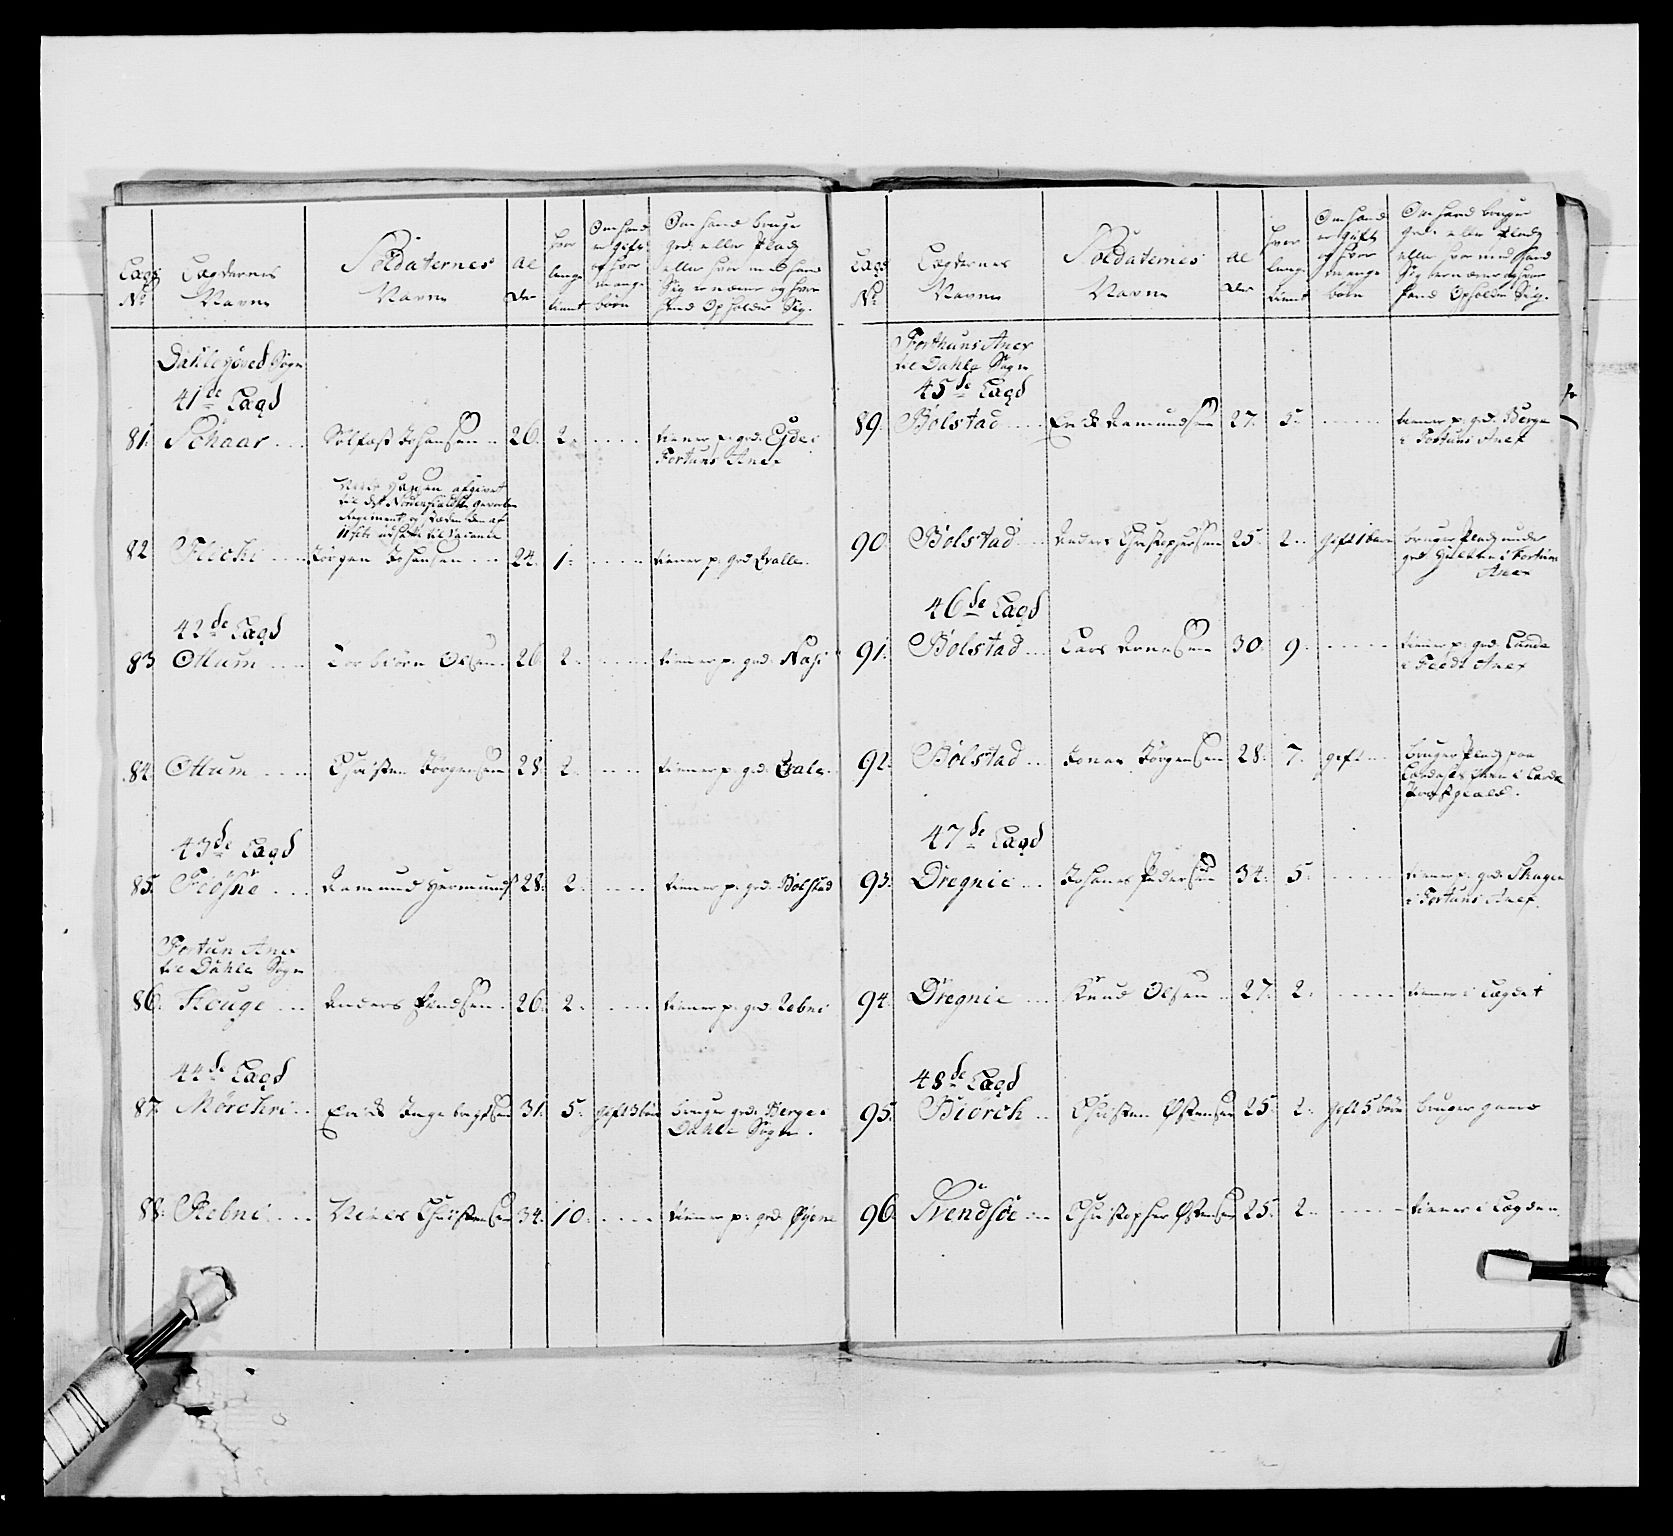 Lægs No
Lægdernes Navne
Soldaternes Navne
Al der
hvor længe tient
Om hand er gift og hvor mange børn
Om hand bruger grd: eller Plads eller hvor med hand Sig ernærer og hvor hand Opholder Sig.
Dahle hoved Sogn
41de Lægd
81. Schaar ... Johansen 26. 2. tiener p: grd: Ejde i
Fortuns Anex
Niels Hansen afgivet
til det Nordenfieldske gevorbne
Regiment og
82 Flichi ... Jørgen Johansen ... 24. 1. tiener p: grd: Qvalle.
42de Lægd
83 Mum ... Torbiörn Olsen 26. 2. tiener p: grd:
84. Mum ... Christen Jörgensen 28. 2. tiener p: grd: Qvale.
43de Lægd
85. Fiösne ... Ramund Hermunds 28. 2. tiener p: grd: Bolstad
Fortun Anex
til Dahle Sogn
86. Houge ... Anders 26. 2. tiener p: grd: Rebni
44de Lægd
87. Mörchri ... Erick Ingebregtsen 31. 5. gift 3 børn bruger grd: Berge i
Dahle Sogn.
88. Rebni ... Niels Christensen 34. 10. tiener p: grd: Øyene
Lægd No
Lægdernes Navne
Soldaternes Navne
Al der
hvor længe tient
Om hand er gift og hvor mange børn
Om hand bruger grd: eller Plads eller hvor med hand Sig ernærer og hvor hand Opholder Sig.
Forthuns Anex
til Dahle Sogn
45de Lægd
89. Bolstad ... Erick Ramundsen 27. 5. tiener p: grd: Berge
i Fortuns Anex
90. Bolstad ... Anders Christophersen 25. 2. gift 1 barn bruger Plads under
grd: i Fortuns
Anex
46de Lægd
91. Bolstad ... Lars Arnesen 30. 9. tiener p: grd: Lunde
i Feedt Anex
92. Bolstad ... Jonas Jörgensen 28. 7. gift bruger Plads paa
i Lerdals
Præstgield.
47de Lægd
93. Dregnie ... Johanes Pedersen 34. 5. tiener p: grd: Skagen
i Fortuns Anex
94. Dregnie ... Knud Olsen 27. 2. tiener i Lægdet
48de Lægd
95. Biörch ... Christen Østensen 25. 2. gift 5 børn bruger gaard
96. Svendsöe ... Christopher Østensen 25. 2. tiener i Lægden.